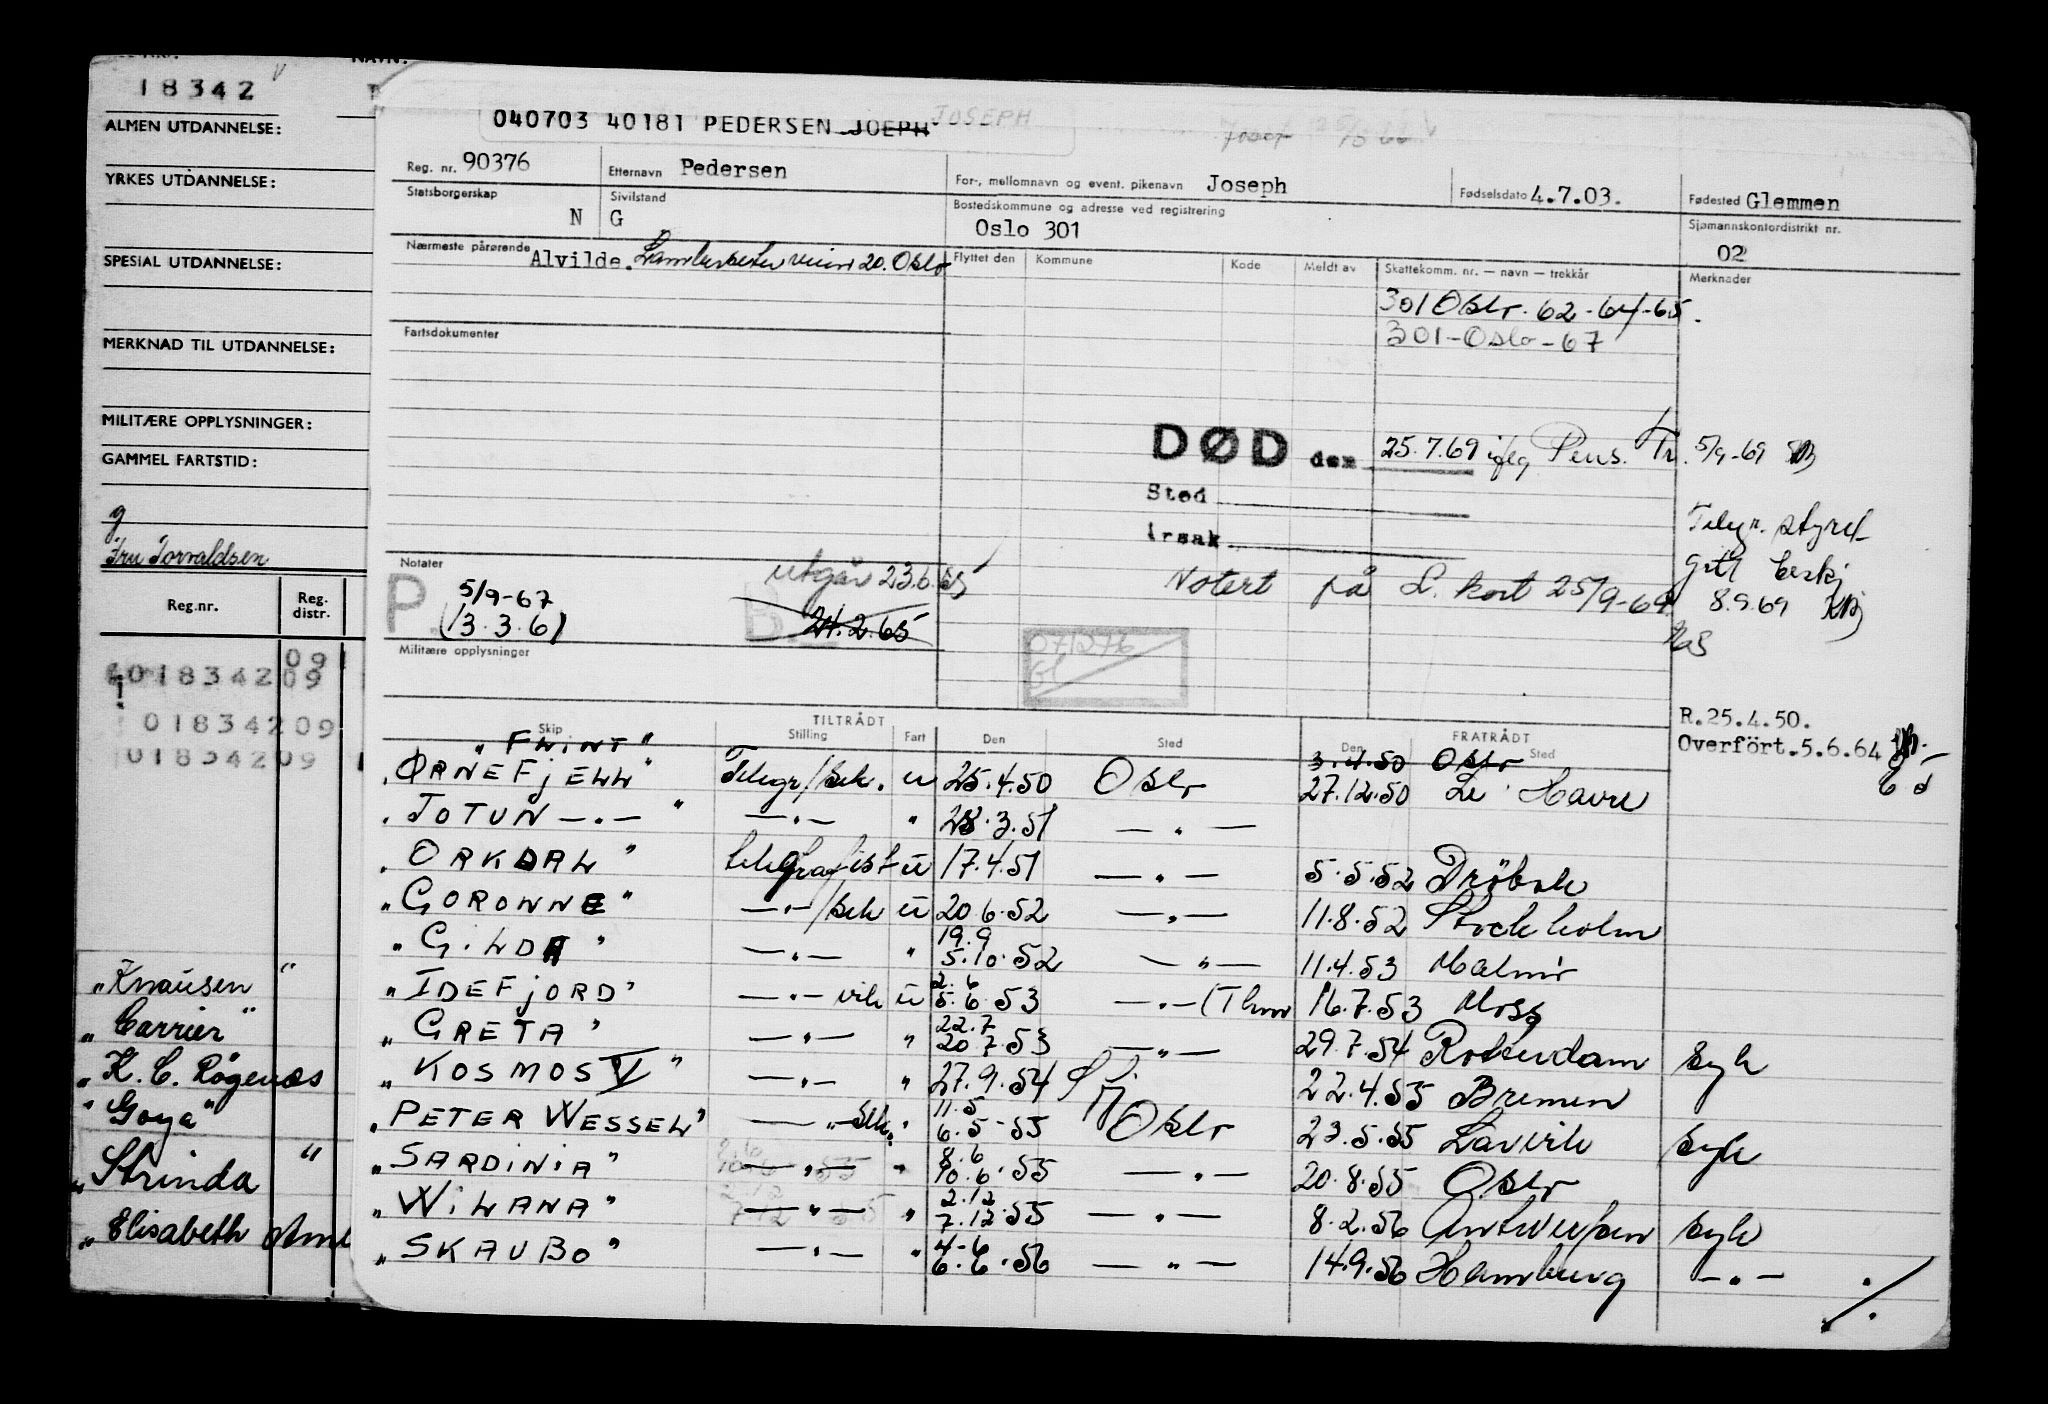 18342
ALMEN UTDANNELSE:
YRKES UTDANNELSE:
SPESIAL UTDANNELSE:
MERKNAD TIL UTDANNELSE:
MILITÆRE OPPLYSNINGER:
GAMMEL FARTSTID:
g
Fru Torvaldsen
Reg.nr. Reg. distr.
09
01834209
01834209
01834209
"Knausen"
"Carrier"
"K. C. Rogenæs
"Goya"
"Strinda"
"Elisabeth
040703 40181 PEDERSEN JOEPH JOSEPH
Reg. nr. 90376 Etternavn Pedersen For-, mellomnavn og event. pikenavn Joseph Fødselsdato 4.7.03. Fødested Glemmen
Statsborgerskap N Sivilstand G Bostedskommune og adresse ved registrering Oslo 301 Sjømannskontordistrikt nr. 02
Nærmeste pårørende Alvilde. Lambertseterveien 20. Oslo Flyttet den Kommune Kode Meldt av Skattekomm. nr. — navn — trekkår Merknader
301 Oslo. 62-64-65.
301-Oslo-67
Fartsdokumenter
DØD den 25.7.69 ifølg Pens. Tr. 5/9-69
Sted
Årsak
Telegr. styret
gitt beskj
8.9.69
Notert på L. kort 25/9-69
Notater
P. 5/9-67
(13.3.61)
utgår 23.6.65
B. 24.2.65
071276
Gl
Militære opplysninger
R.25.4.50.
Overfört.5.6.64
TILTRÅDT FRATRÅDT
Skip Stilling Fart Den Sted Den Sted
"FLINT" 3.4.50 Oslo
"ØRNEFJELL" Telegr/sek. u 25.4.50 Oslo 27.12.50 Le Havre
"JOTUN —"— " —"— " 28.3.51 —"—
"ORKDAL" telegrafist u 17.4.51 —"— 5.5.52 Dröbak
"GORONNE" —"—/sek u 20.6.52 —"— 11.8.52 Stockholm
"GILDA" —"— " 19.9 5.10.52 —"— 11.4.53 Malmö
"IDEFJORD" —"— vik u 2.6 5.6.53 —"— (Thm 16.7.53 Moss
"GRETA" —"— " 22.7 20.7.53 —"— 29.7.54 Rotterdam syk
"KOSMOS V" —"— " 27.9.54 Sfj 22.4.55 Bremen
"PETER WESSEL" —"— stk. " 11.5 6.5-55 Oslo 23.5.55 Larvik syk
"SARDINIA" —"— " 8.6 10.6.55 —"— 20.8.55 Oslo
"WILANA" —"— " 2.12 7.12.55 —"— 8.2.56 Antwerpen syk
"SKAUBO" —"— " 4-6 6.6.56 —"— 14.9.56 Hamburg —"— ./.